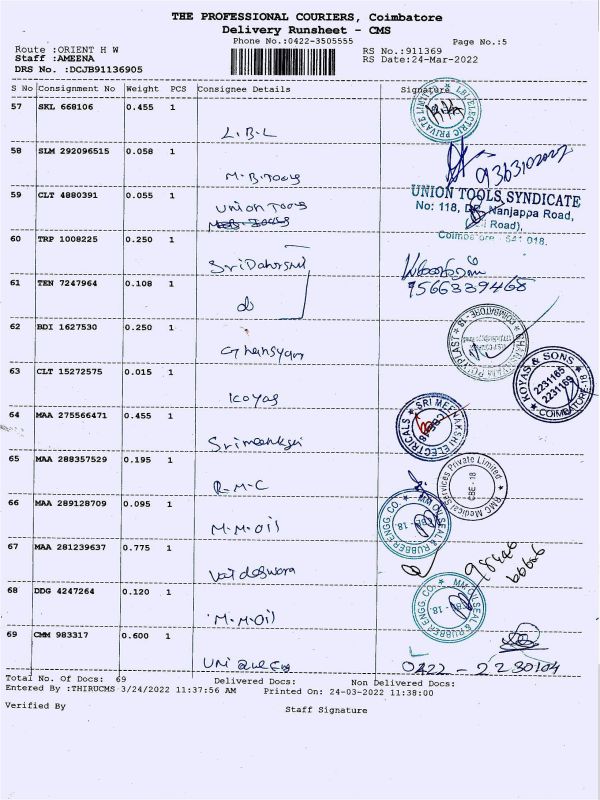 THE PROFESSIONAL COURIERS, Coimbatore
Delivery Runsheet - CMS
Phone No.:0422-3505555
Page No.:5
Route :ORIENT H W
RS No.:911369
Staff :AMEENA
RS Date:24-Mar-2022
DRS No. :DCJB91136905
S No Consignment No Weight PCS Consignee Details Signature
57 SKL 668106 0.455 1
L.B.L
58 SLM 292096515 0.058 1
M.B.Tools
59 CLT 4880391 0.055 1
Union Tools
UNION TOOLS SYNDICATE
No: 118, Dr. Nanjappa Road,
Road),
Coimbatore 641 018.
60 TRP 1008225 0.250 1
61 TEN 7247964 0.108 1
do
9566339468
62 BDI 1627530 0.250 1
Ghansyam
63 CLT 15272575 0.015 1
Koyas
KOYAS & SONS
2231165
2231169
COIMBATORE-18
64 MAA 275566471 0.455 1
SRI MEENAKSHI ELECTRICALS
65 MAA 288357529 0.195 1
R.M.C
RMC Medical Services Private Limited
CBE - 18
66 MAA 289128709 0.095 1
M.M.Oil
MM OIL SEAL & RUBBER ENGG. CO.
CBE - 18.
67 MAA 281239637 0.775 1
68 DDG 4247264 0.120 1
M.M.Oil
MM OIL SEAL & RUBBER ENGG. CO.
69 CMM 983317 0.600 1
0422 - 2230104
Total No. Of Docs: 69 Delivered Docs: Non Delivered Docs:
Entered By :THIRUCMS 3/24/2022 11:37:56 AM Printed On: 24-03-2022 11:38:00
Verified By
Staff Signature